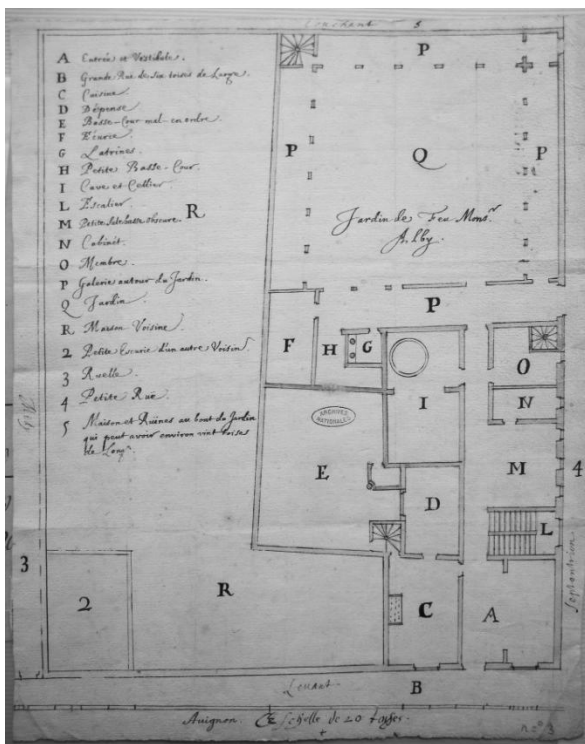 Couchant 5
A Entrée et Vestibule.
B Grande Rue de Six toises de Large
C Cuisine
D Dépense
E Basse-Cour mal-en ordre
F Ecurie
G Latrines
H Petite Basse-Cour
I Cave et Cellier
L Escalier
M Petite Sale basse obscure
N Cabinet
O Membre
P Galerie autour du Jardin
Q Jardin
R Maison Voisine
2 Petite Escurie d'un autre Voisin
3 Ruelle
4 Petite Rue
5 Maison et Ruines au bout du Jardin
qui peut avoir environ vint toises
de Long
P
P
Q
P
R
Jardin de Feu Monsr
Alby
P
F
H
G
O
I
N
ARCHIVES
NATIONALES
E
M
4
D
L
Septentrion
Midy
3
2
R
C
A
Levant
B
Avignon. Echelle de 20 toyses
n.º 3